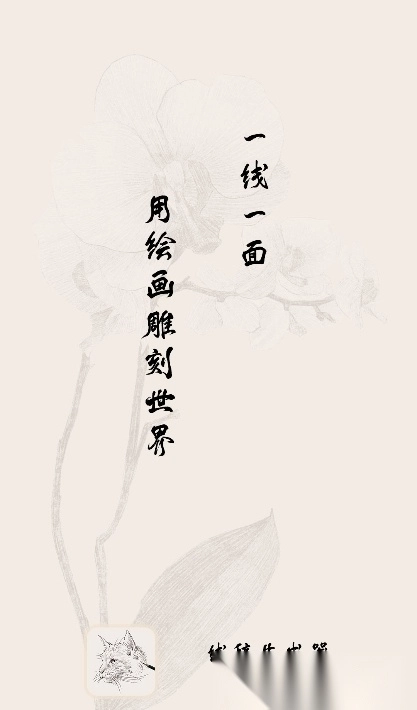 一线一面
用绘画雕刻世界